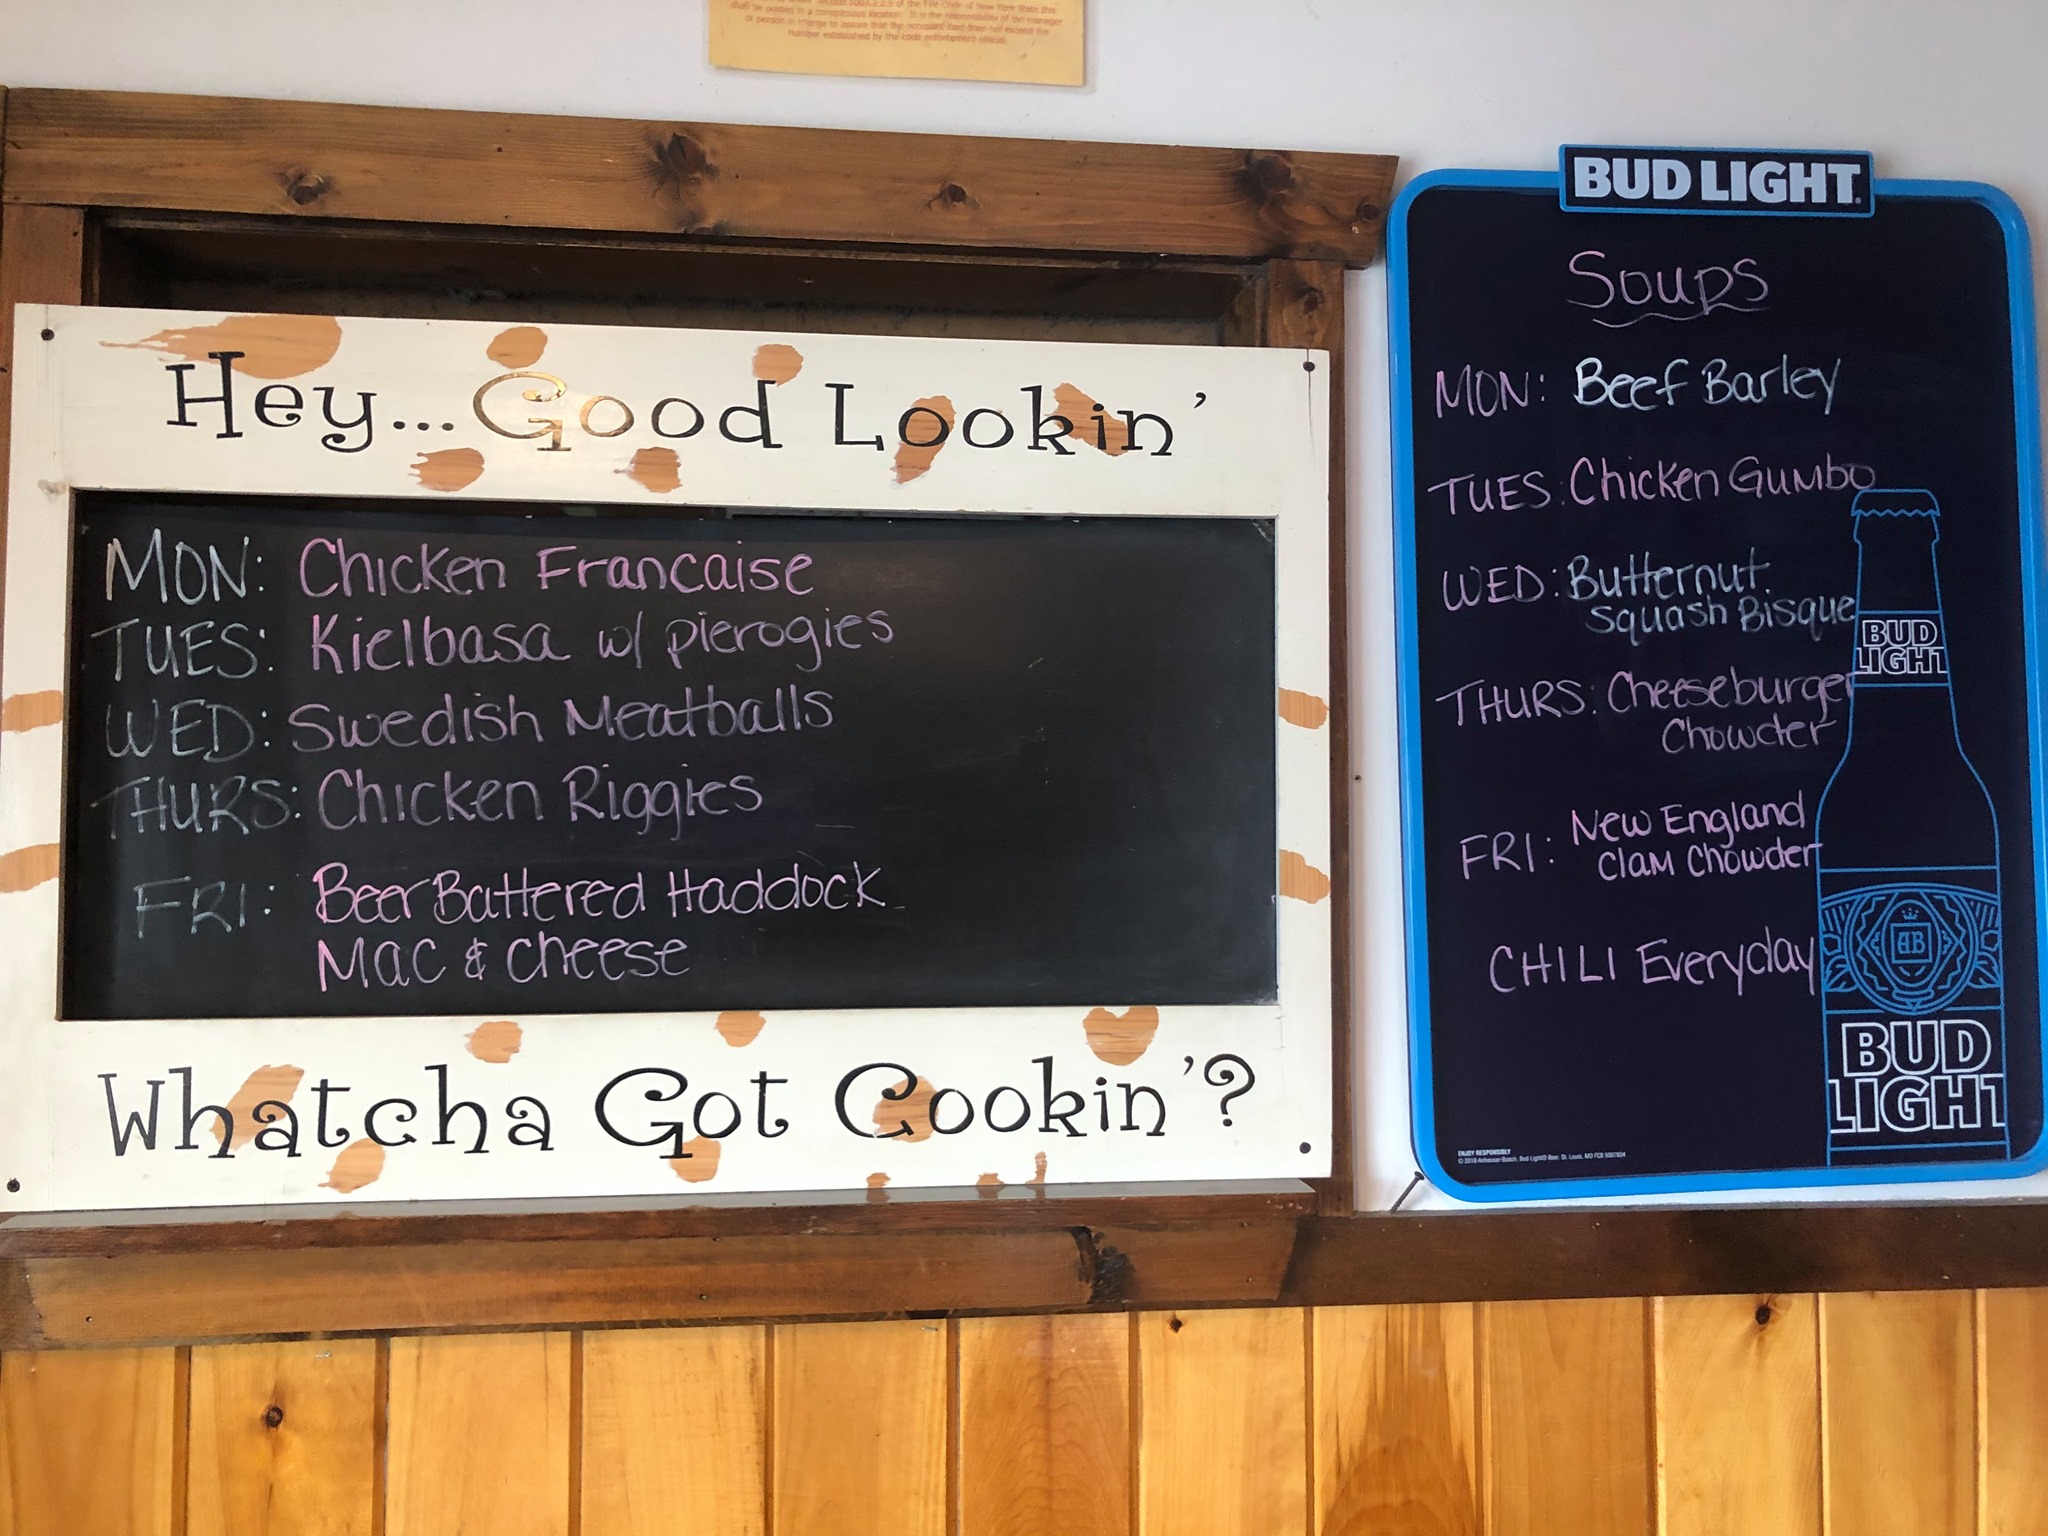 Section 1003.2.2.5 of the Fire Code of New York State this
shall be posted in a conspicuous location. It is the responsibility of the manager
or person in charge to assure that the occupant load does not exceed the
number established by the code enforcement official.
Hey... Good Lookin'
MON: Chicken Francaise
TUES: Kielbasa w/ pierogies
WED: Swedish Meatballs
THURS: Chicken Riggies
FRI: Beer Battered Haddock
Mac & cheese
Whatcha Got Cookin'?
BUD LIGHT
Soups
MON: Beef Barley
TUES: Chicken Gumbo
WED: Butternut
Squash Bisque
THURS: Cheeseburger
Chowder
FRI: New England
Clam Chowder
CHILI Everyday
BUD
LIGHT
AB
BUD
LIGHT
ENJOY RESPONSIBLY
© 2018 Anheuser-Busch, Bud Light® Beer, St. Louis, MO